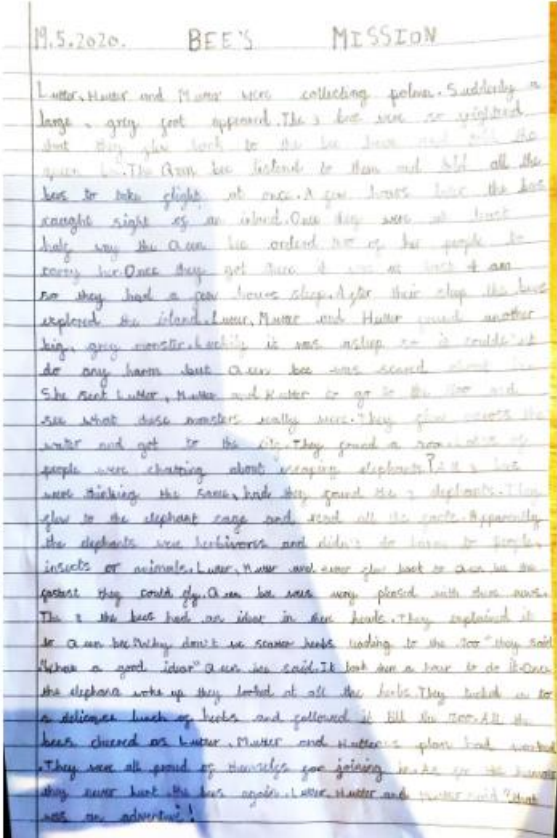 19.5.2020. BEE'S MISSION
Lutter, Hutter and Mutter were collecting polen. Suddenly a
large, grey foot appeared. The 3 bees were so frightend
that they flew back to the bee and told the
queen. The Queen bee listend to them and told all the
bees to take flight at once. A few hours later the bees
caught sight of an island. Once they were at least
half way the Queen bee orderd of her people to
carry her. Once they got there it was at least 4 am
so they had a few hours sleep. After their sleep the bees
explored the island. Lutter, Mutter and Hutter found another
big, grey monster. Luckily it was asleep so it couldn't
do any harm but Queen bee was scared about
She sent Lutter, Mutter and Hutter to go to the zoo and
see what these monsters really were. They flew across the
water and got to the city. They found a zoo. of
people were chatting about escaping elephants? All 3 bees
were thinking the same, had they found the elephants. They
flew to the elephant cage and read all the facts. Apparently
the elephants were herbivores and didn't do harm to people,
insects or animals. Lutter, Hutter and flew back to Queen bee the
fastest they could fly. Queen bee was very pleased with there news.
The 3 bees had an idear in there heads. They explained it
to Queen bee. Why don't we scatter herbs leading to the zoo" they said.
"What a good idear" Queen bee said. It took them a hour to do it. Once
the elephants woke up they looked at all the herbs. They tucked in to
a lunch of herbs and followed it till the zoo. All the
bees cheered as Lutter, Mutter and Hutter's plan had worked
. They were all proud of themselfs for joining in. As for the
they never hurt the bees again. Lutter, Hutter and Mutter said "that
was an adventure!